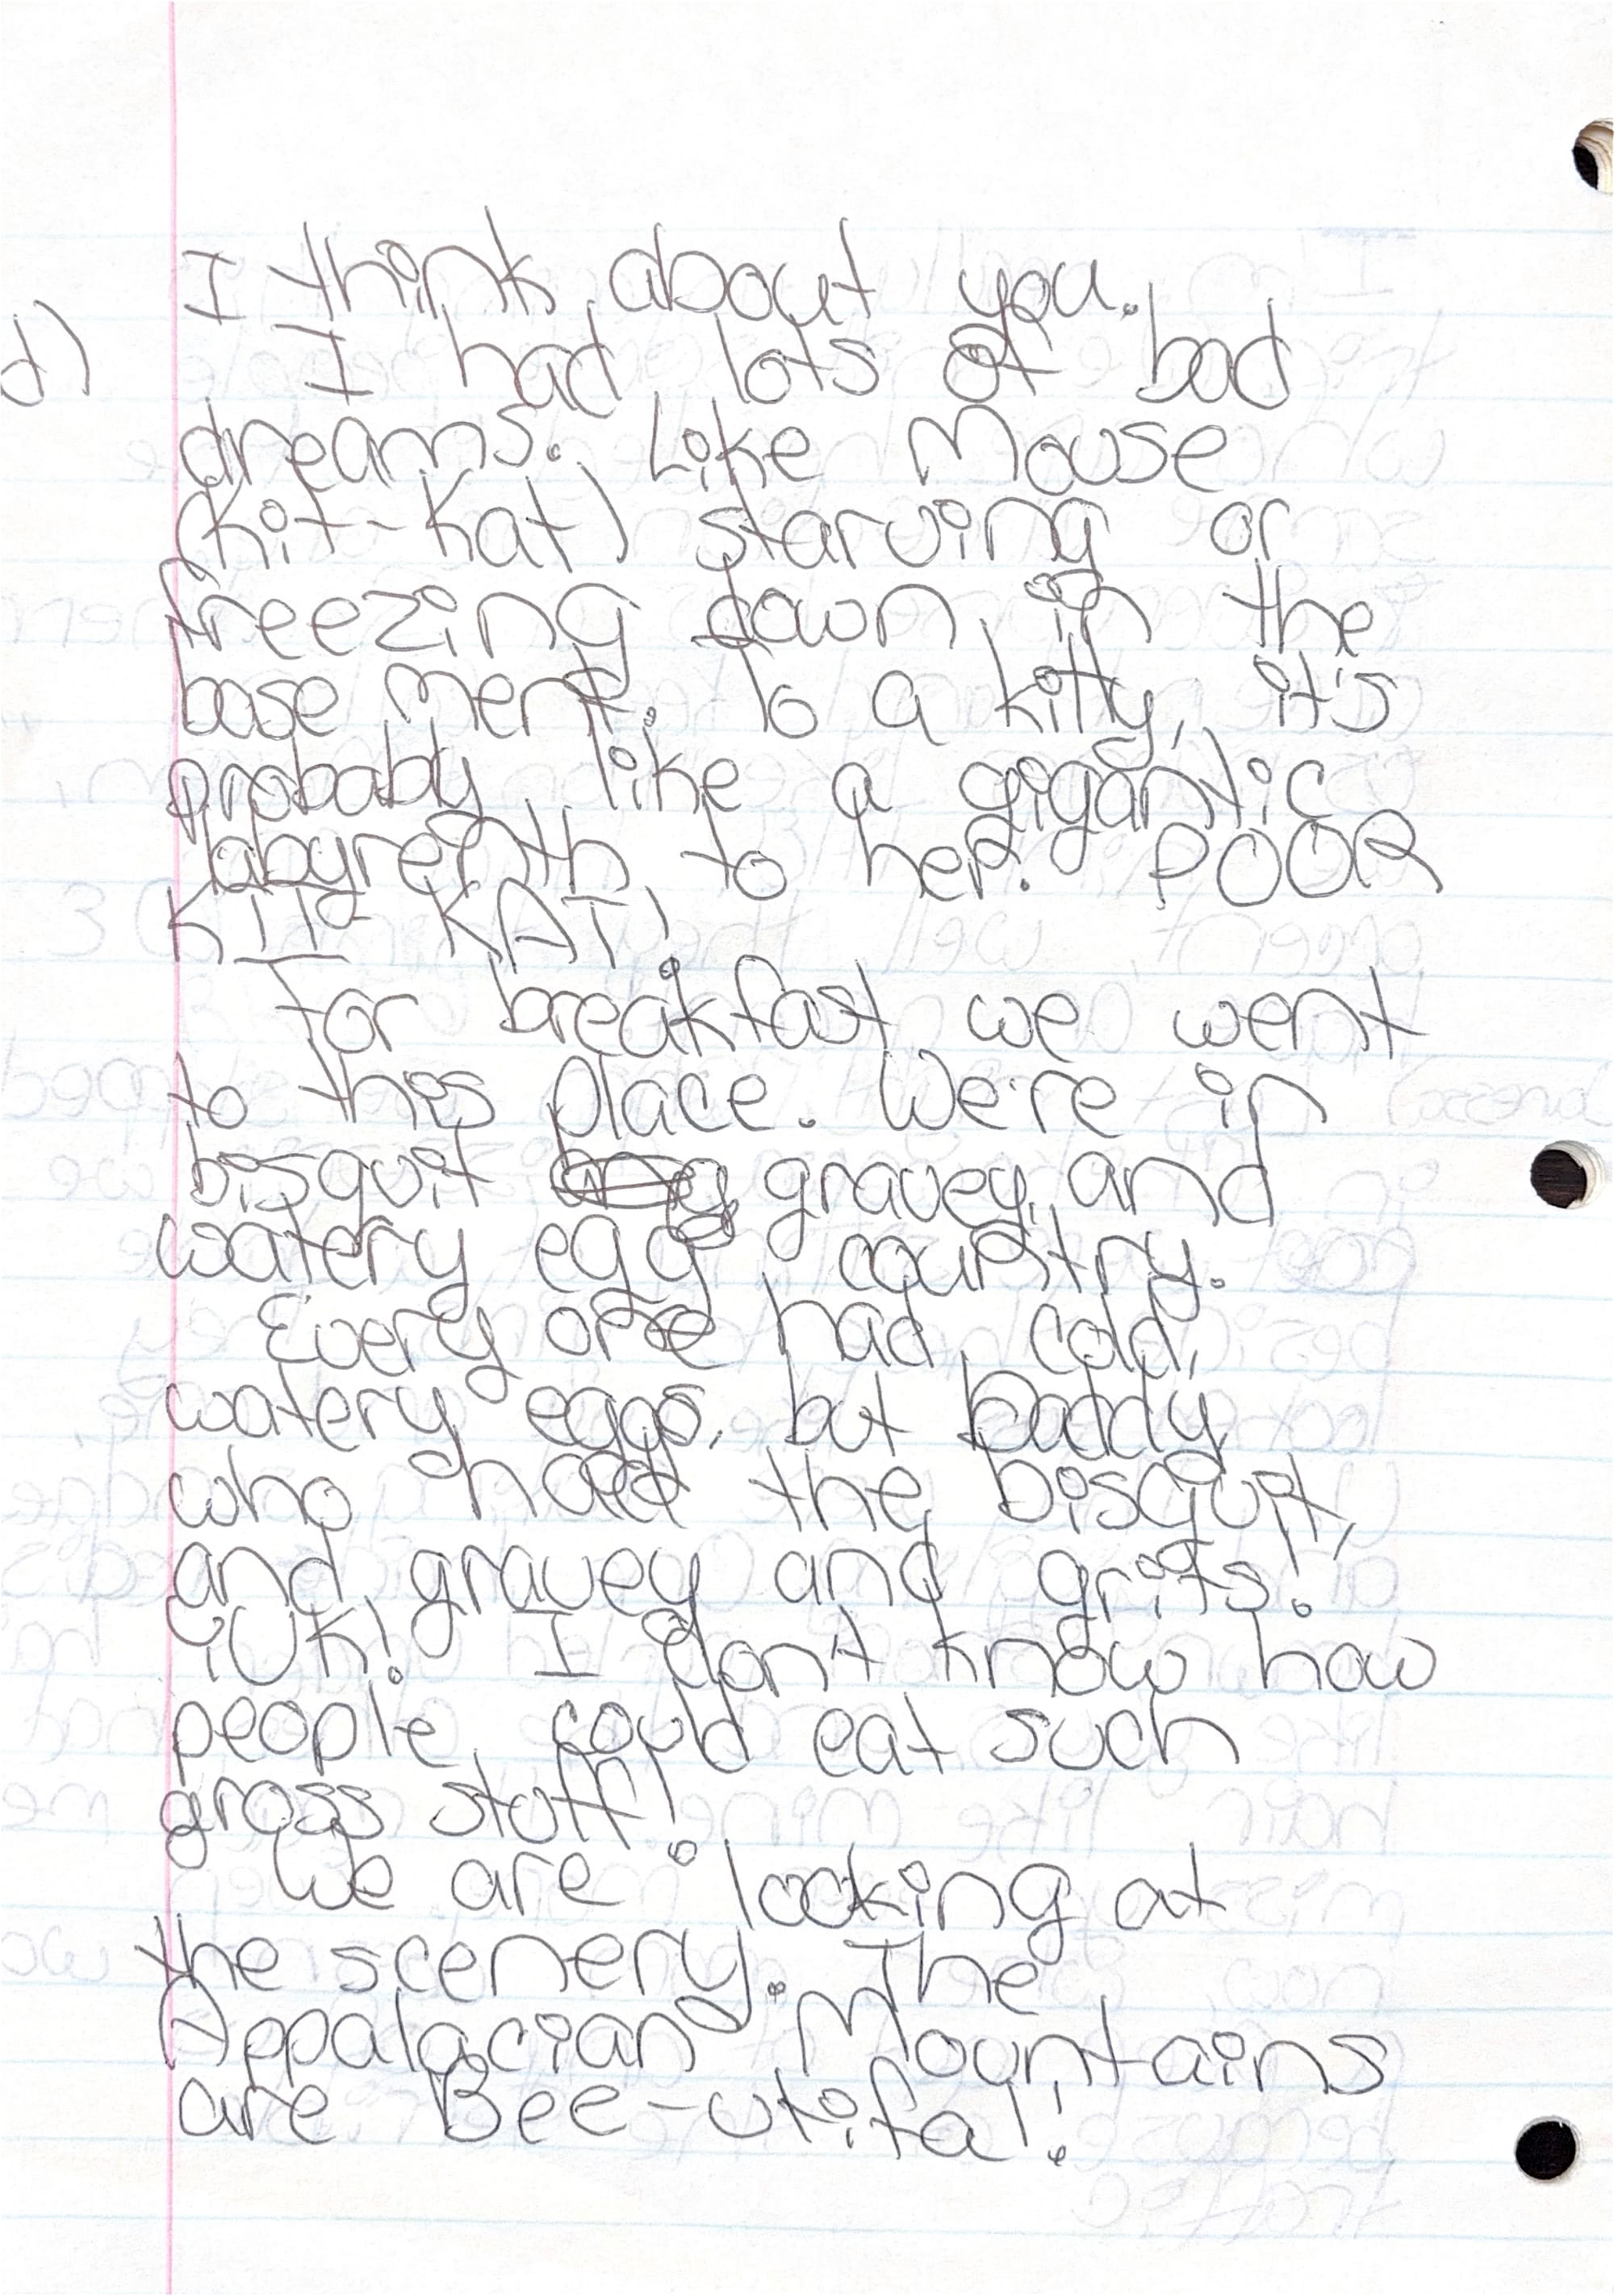 I think about you.
d) I had lots of bad
dreams. Like Mouse
(Kit-Kat) starving or
freezing down in the
base ment. To a kitty, it's
probaby like a gigantic
labyreinth to her. POOR
KIT-KAT!
For breakfast we went
to this place. We're in
bisquit gravey, and
watery egg country.
Every one had cold,
watery eggs, but Daddy
who had the bisquit,
and gravey and grits!
YUK! I don't know how
people could eat such
gross stuff!
We are looking at
the scenery. The
Appalacian Mountains
are Bee-utifal!